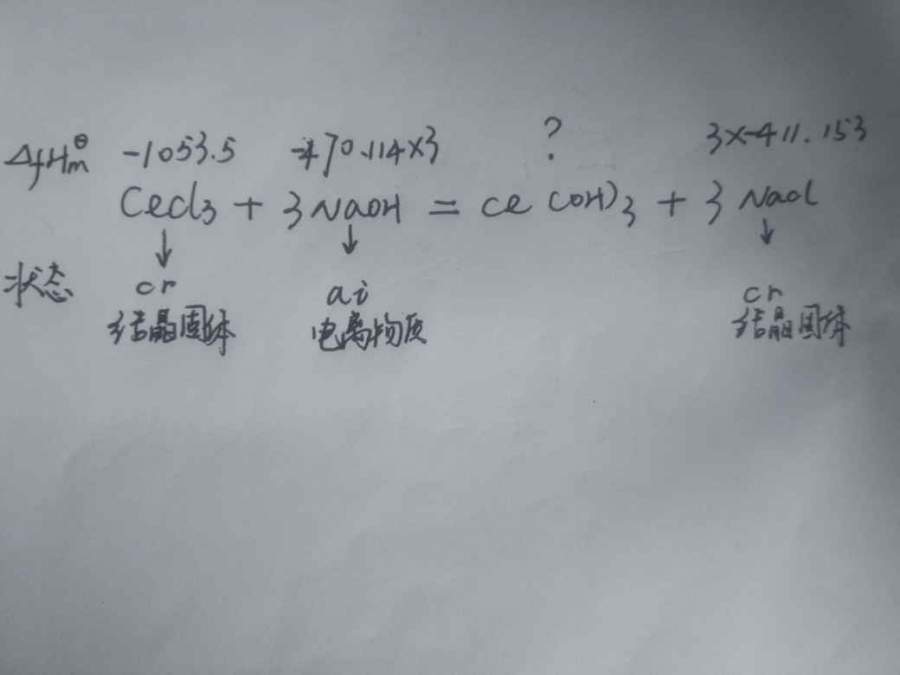 ΔfHm⊖ -1053.5 -470.114×3 ? 3×-411.153
CeCl3 + 3NaOH = Ce(OH)3 + 3NaCl
↓ ↓ ↓
状态 cr ai cr
结晶固体 电离物质 结晶固体